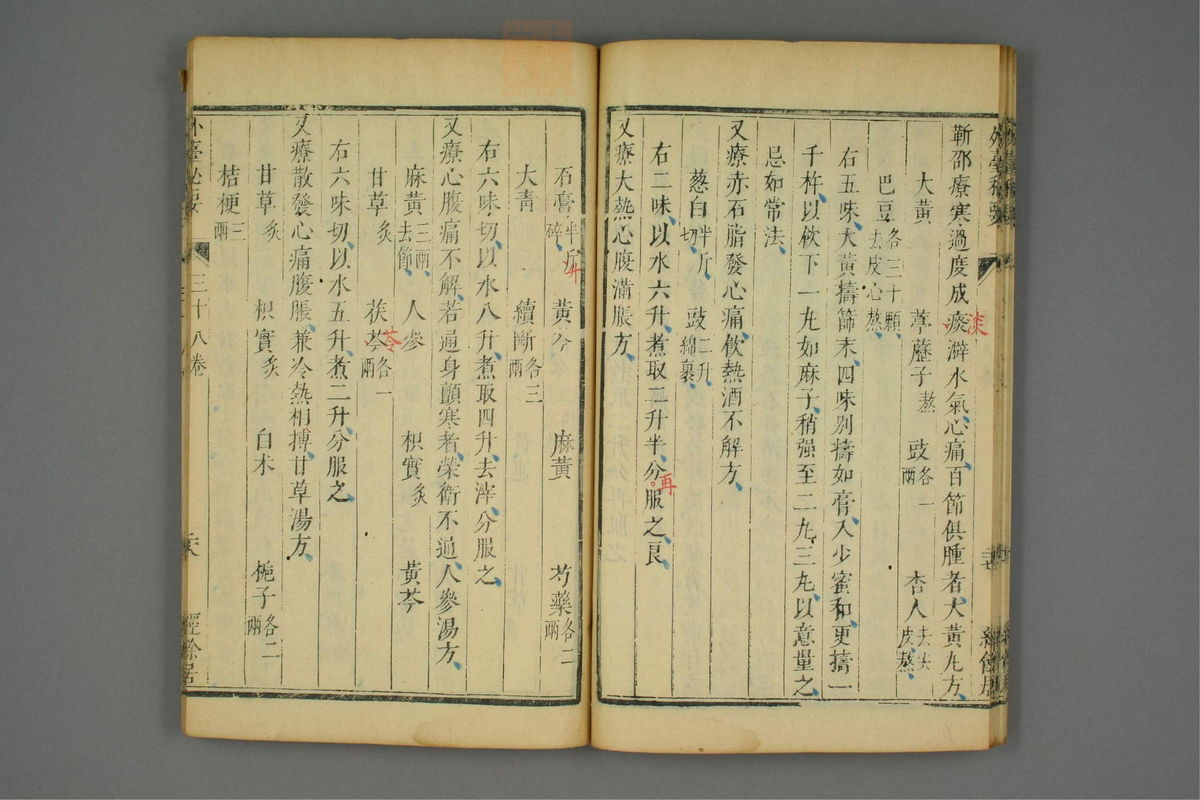 外臺秘要
靳邵療寒過度成痰澼水氣心痛百節俱腫者大黃丸方
淡
大黃 葶藶子熬 豉各一兩 杏人去尖皮熬
巴豆各三十顆去皮心熬
右五味大黃擣篩末四味別擣如膏入少蜜和更擣一
千杵以飲下一丸如麻子稍强至二丸三丸以意量之
忌如常法
又療赤石脂發心痛飲熱酒不解方
葱白半斤切 豉二升綿裹
右二味以水六升煮取二升半分服之良
再
又療大熱心腹滿脹方
石膏半斤碎 黃芩 麻黃 芍藥各二兩
升
大青 續斷各三兩
右六味切以水八升煮取四升去滓分服之
又療心腹痛不解若通身顫寒者榮衛不通人參湯方
麻黃三兩去節 人參 枳實炙 黃芩
甘草炙 茯苓各一兩
苓
右六味切以水五升煮二升分服之
又療散發心痛腹脹兼冷熱相搏甘草湯方
甘草炙 枳實炙 白术 梔子各二兩
桔梗三兩
外臺秘要 三十八卷 二六 經餘居